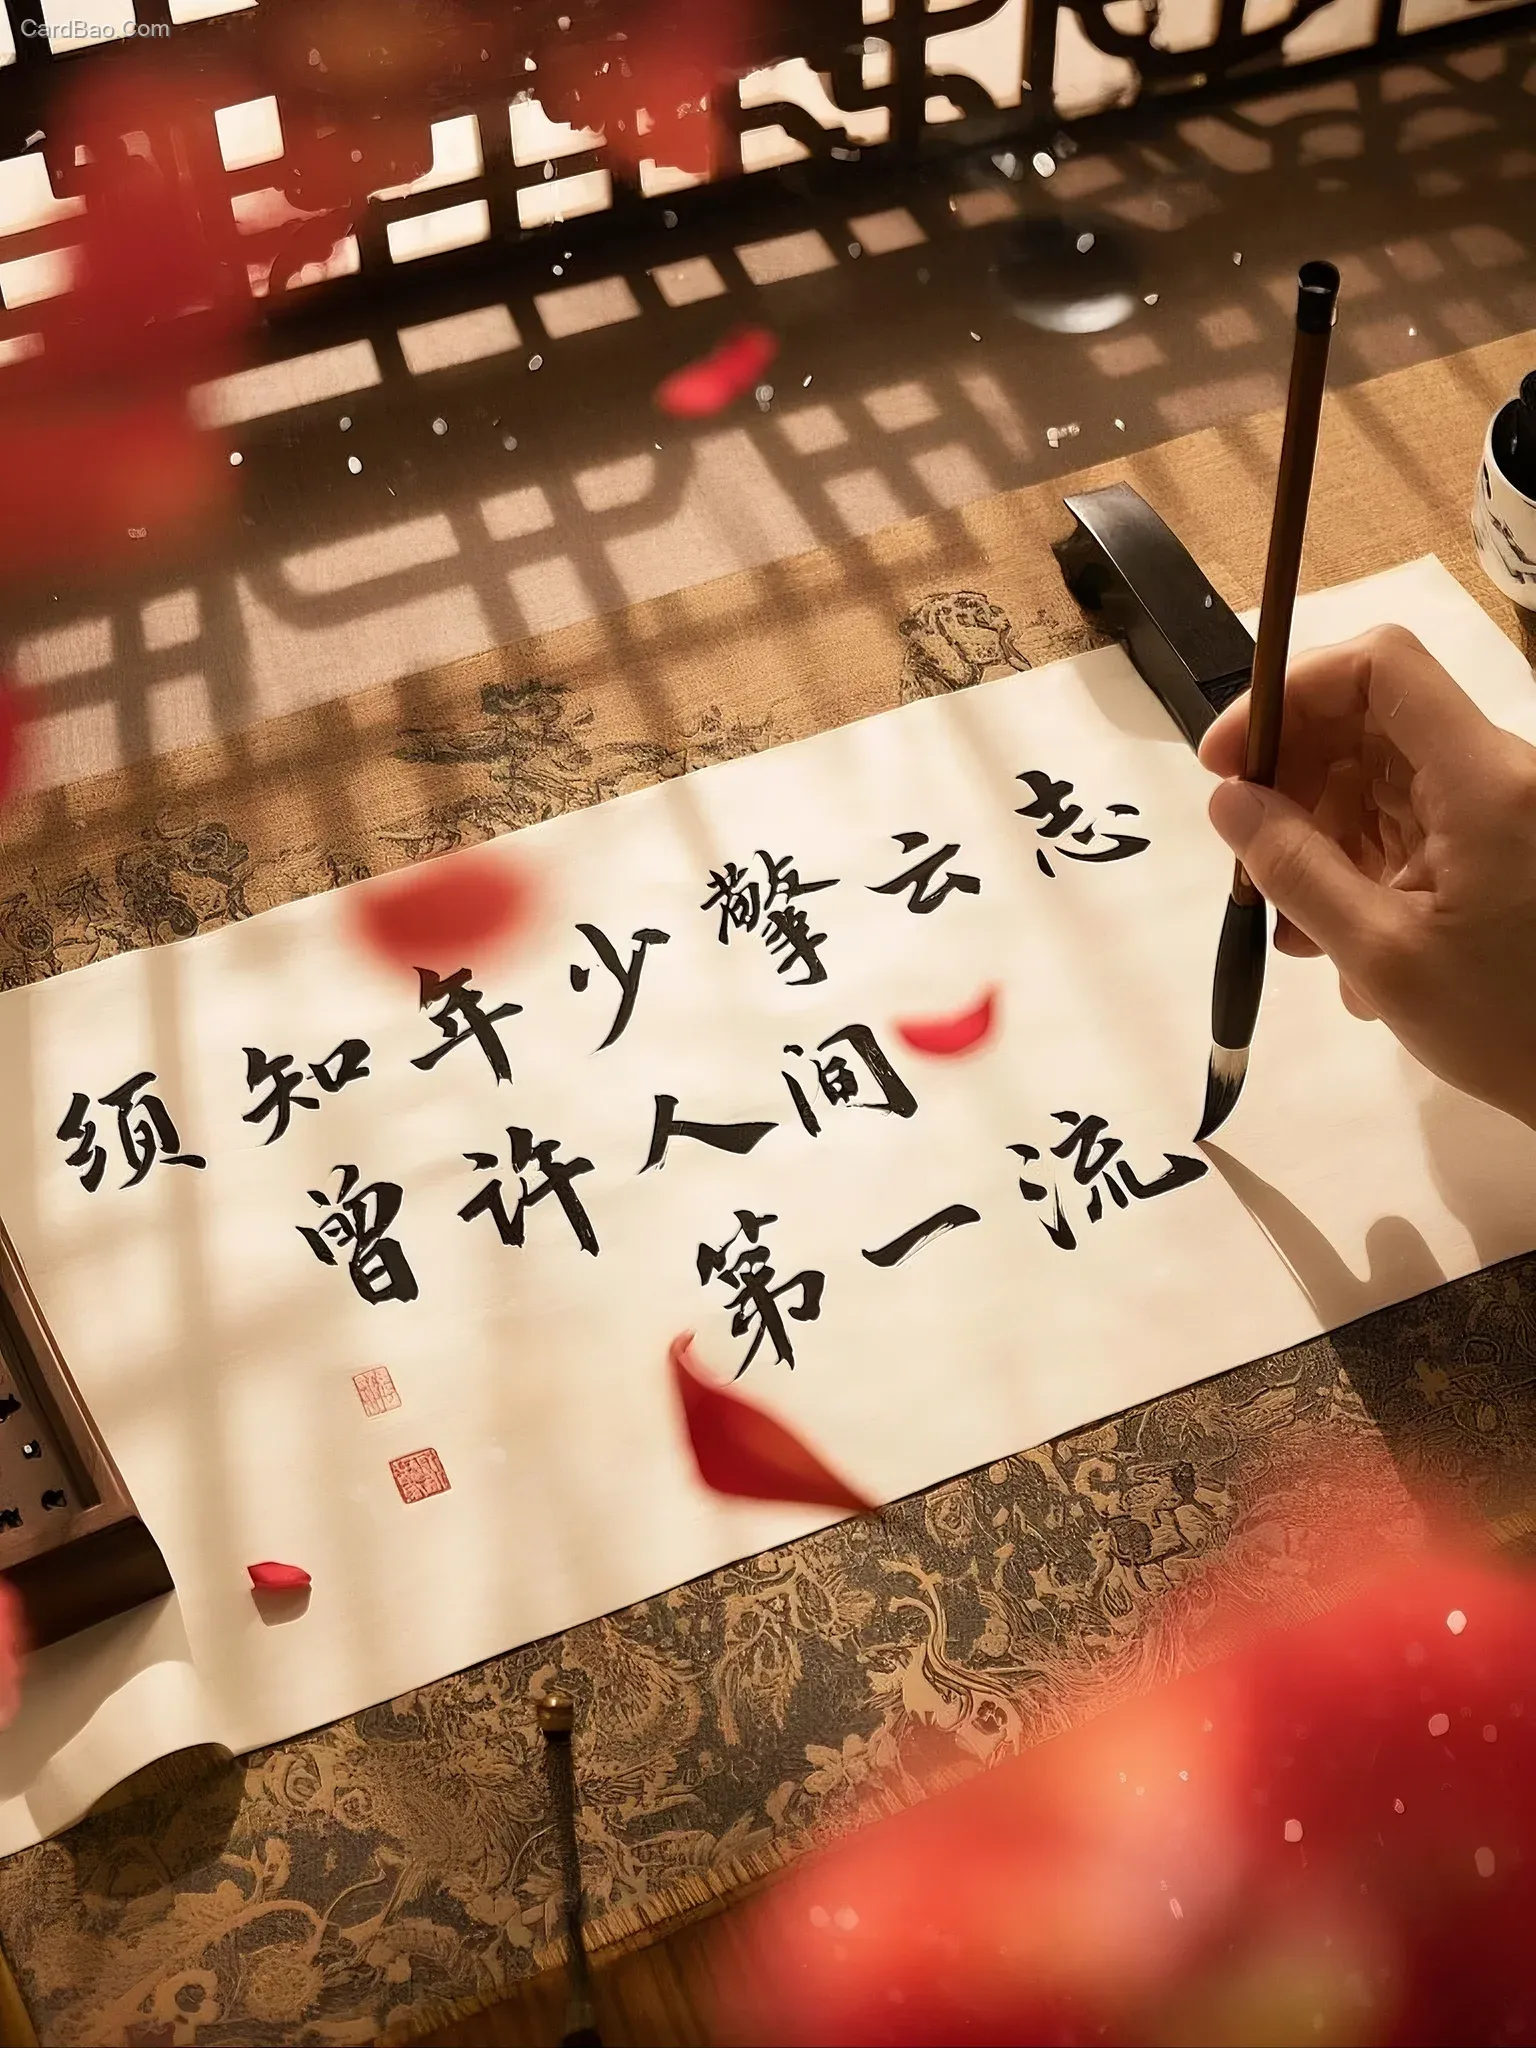 CardBao.Com
须知年少擎云志
曾许人间
第一流